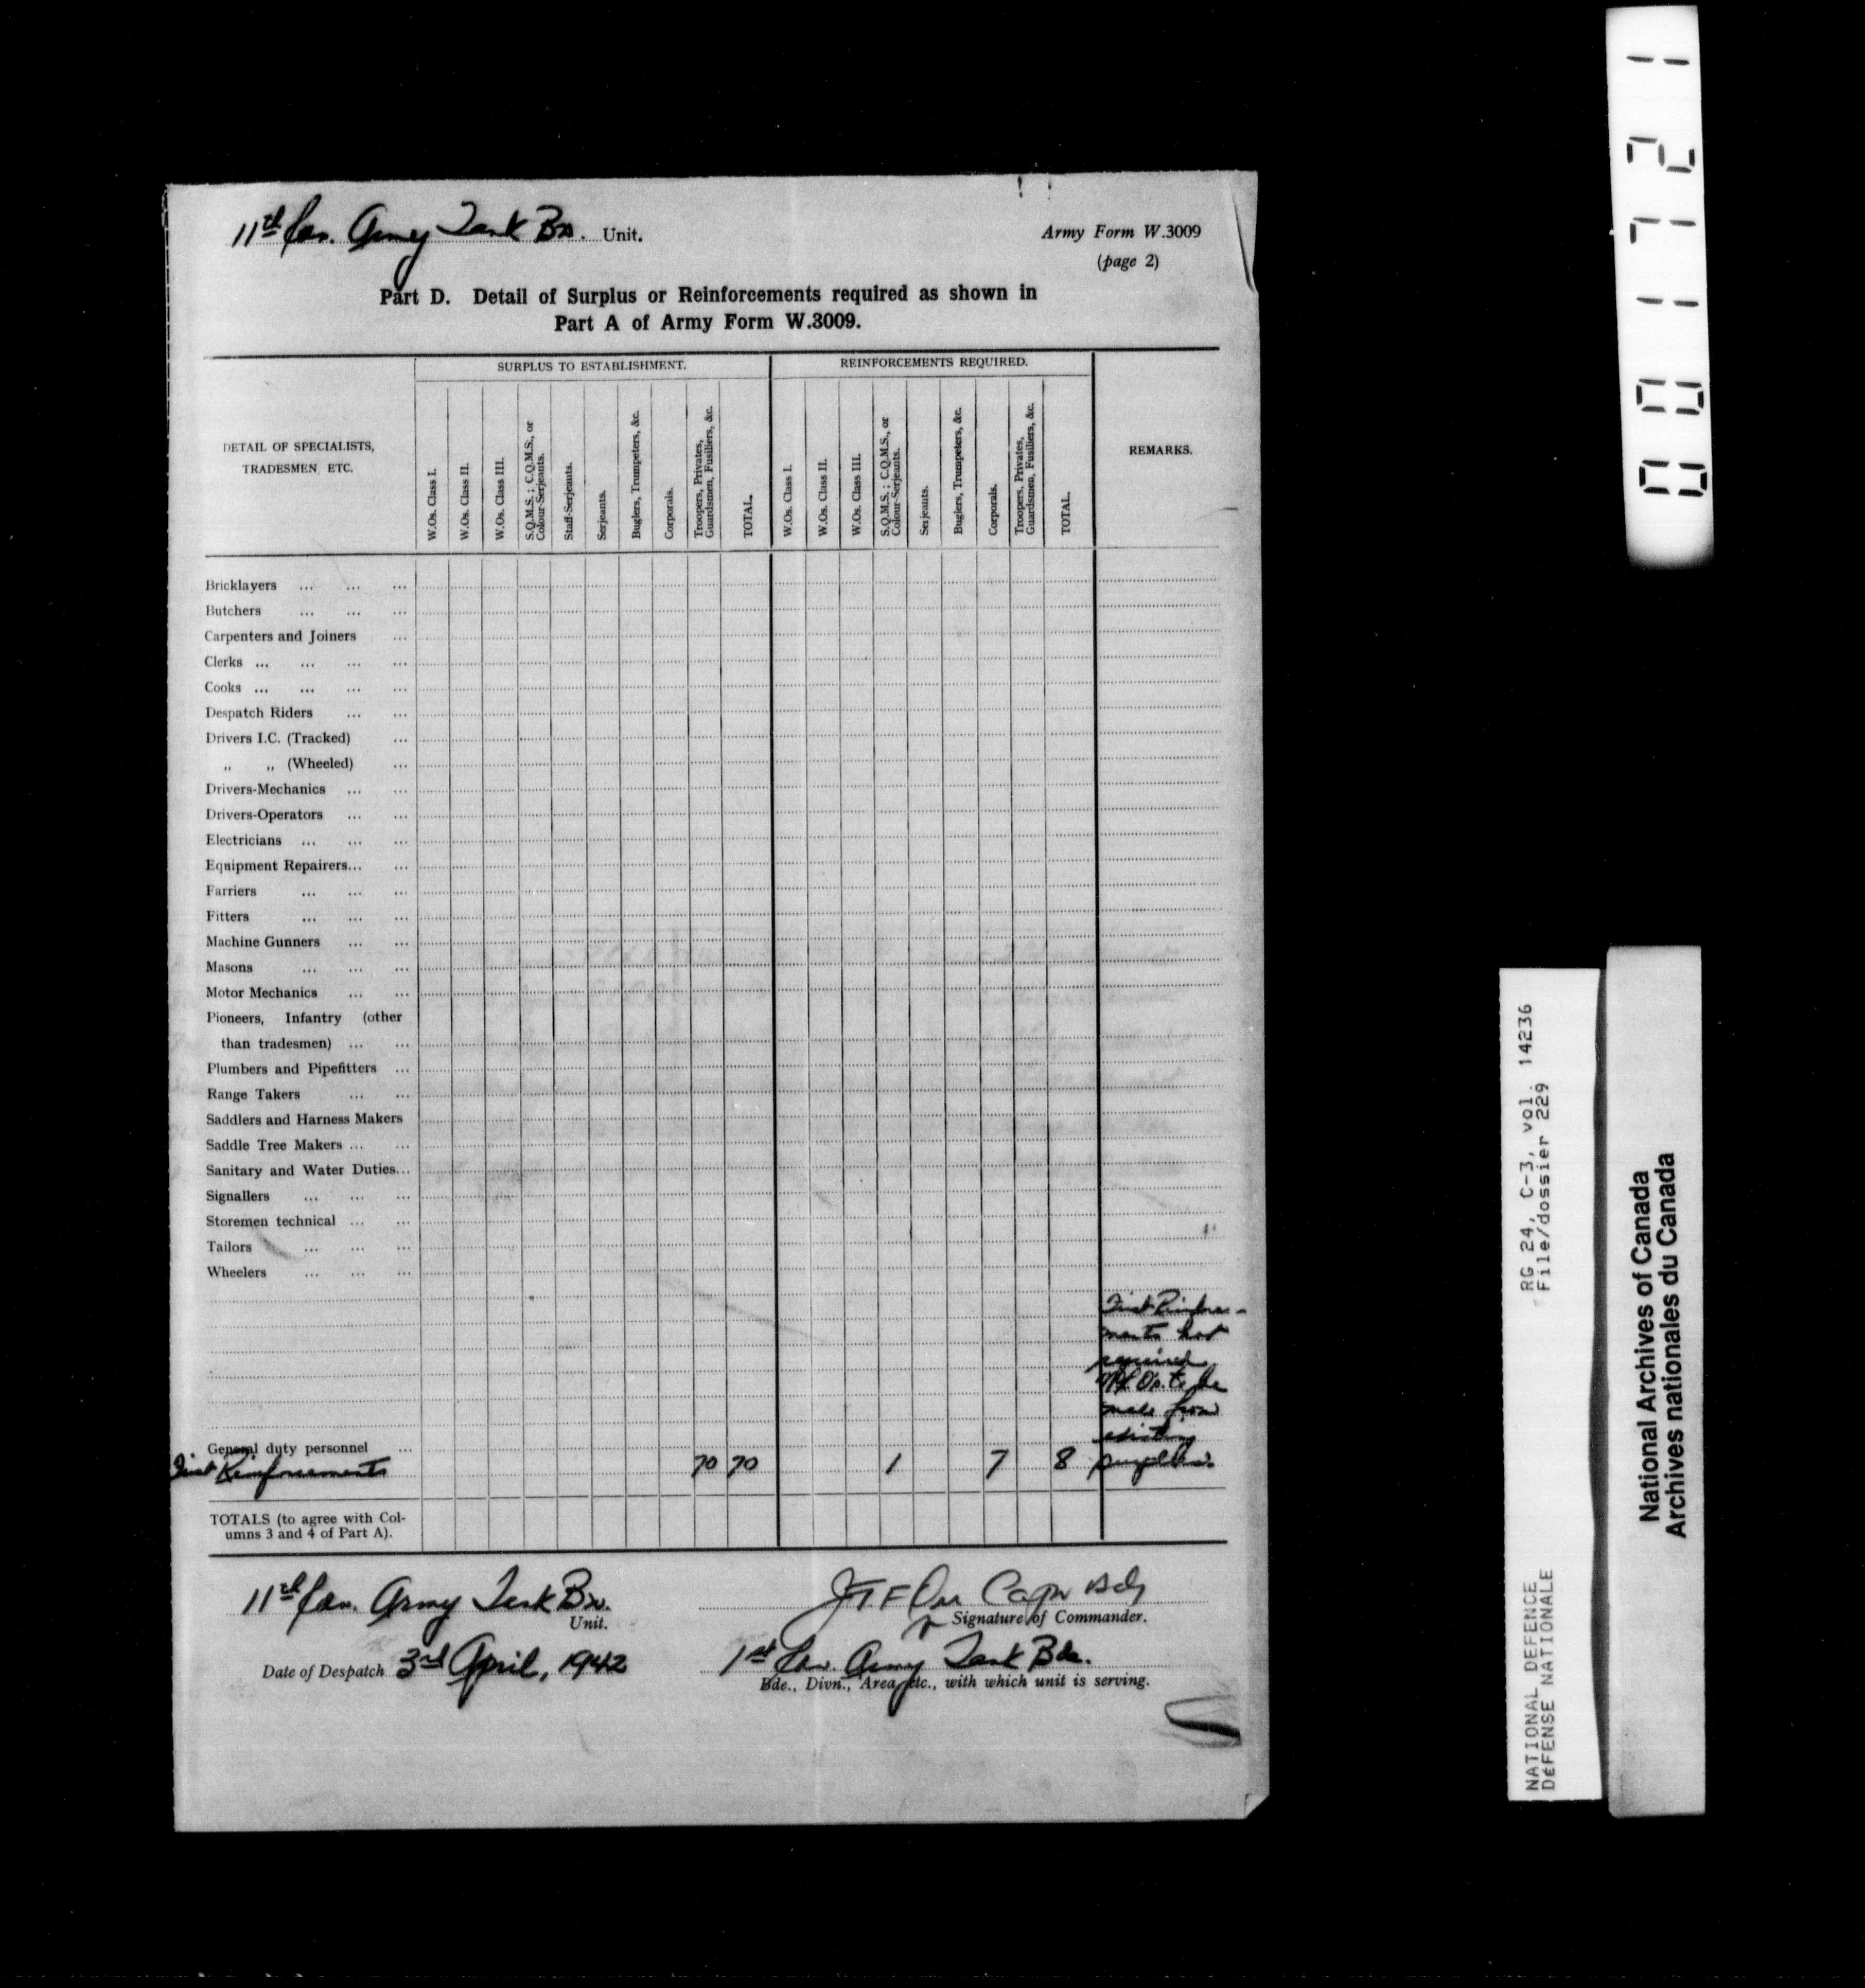 11th Can. Army Tank Bn. Unit.
Army Form W.3009
(page 2)
Part D. Detail of Surplus or Reinforcements required as shown in
Part A of Army Form W.3009.
DETAIL OF SPECIALISTS,
TRADESMEN ETC.
SURPLUS TO ESTABLISHMENT.
W.Os. Class I.
W.Os. Class II.
W.Os. Class III.
S.Q.M.S.; C.Q.M.S., or
Colour-Serjeants.
Staff-Serjeants.
Serjeants.
Buglers, Trumpeters, &c.
Corporals.
Troopers, Privates,
Guardsmen, Fusiliers, &c.
TOTAL.
REINFORCEMENTS REQUIRED.
W.Os. Class I.
W.Os. Class II.
W.Os. Class III.
S.Q.M.S.; C.Q.M.S., or
Colour-Serjeants.
Serjeants.
Buglers, Trumpeters, &c.
Corporals.
Troopers, Privates,
Guardsmen, Fusiliers, &c.
TOTAL.
REMARKS.
Bricklayers ... ... ...
Butchers ... ... ...
Carpenters and Joiners ...
Clerks ... ... ... ...
Cooks ... ... ... ...
Despatch Riders ... ...
Drivers I.C. (Tracked) ...
„ „ (Wheeled) ...
Drivers-Mechanics ... ...
Drivers-Operators ... ...
Electricians ... ... ...
Equipment Repairers... ...
Farriers ... ... ...
Fitters ... ... ...
Machine Gunners ... ...
Masons ... ... ...
Motor Mechanics ... ...
Pioneers, Infantry (other
than tradesmen) ... ...
Plumbers and Pipefitters ...
Range Takers ... ...
Saddlers and Harness Makers
Saddle Tree Makers ... ...
Sanitary and Water Duties...
Signallers ... ... ...
Storemen technical ... ...
Tailors ... ... ...
Wheelers ... ... ...
First Reinforce-
ments not
required
to be
made from
existing
General duty personnel ...
First Reinforcements 70 70 1 7 8
TOTALS (to agree with Col-
umns 3 and 4 of Part A).
11th Can. Army Tank Bn.
Unit.
Capt
Signature of Commander.
Date of Despatch 3rd April, 1942
1st Can. Army Tank Bde.
Bde., Divn., Area, etc., with which unit is serving.
001721
RG 24, C-3, vol. 14236
File/dossier 229
NATIONAL DEFENCE
DéFENSE NATIONALE
National Archives of Canada
Archives nationales du Canada